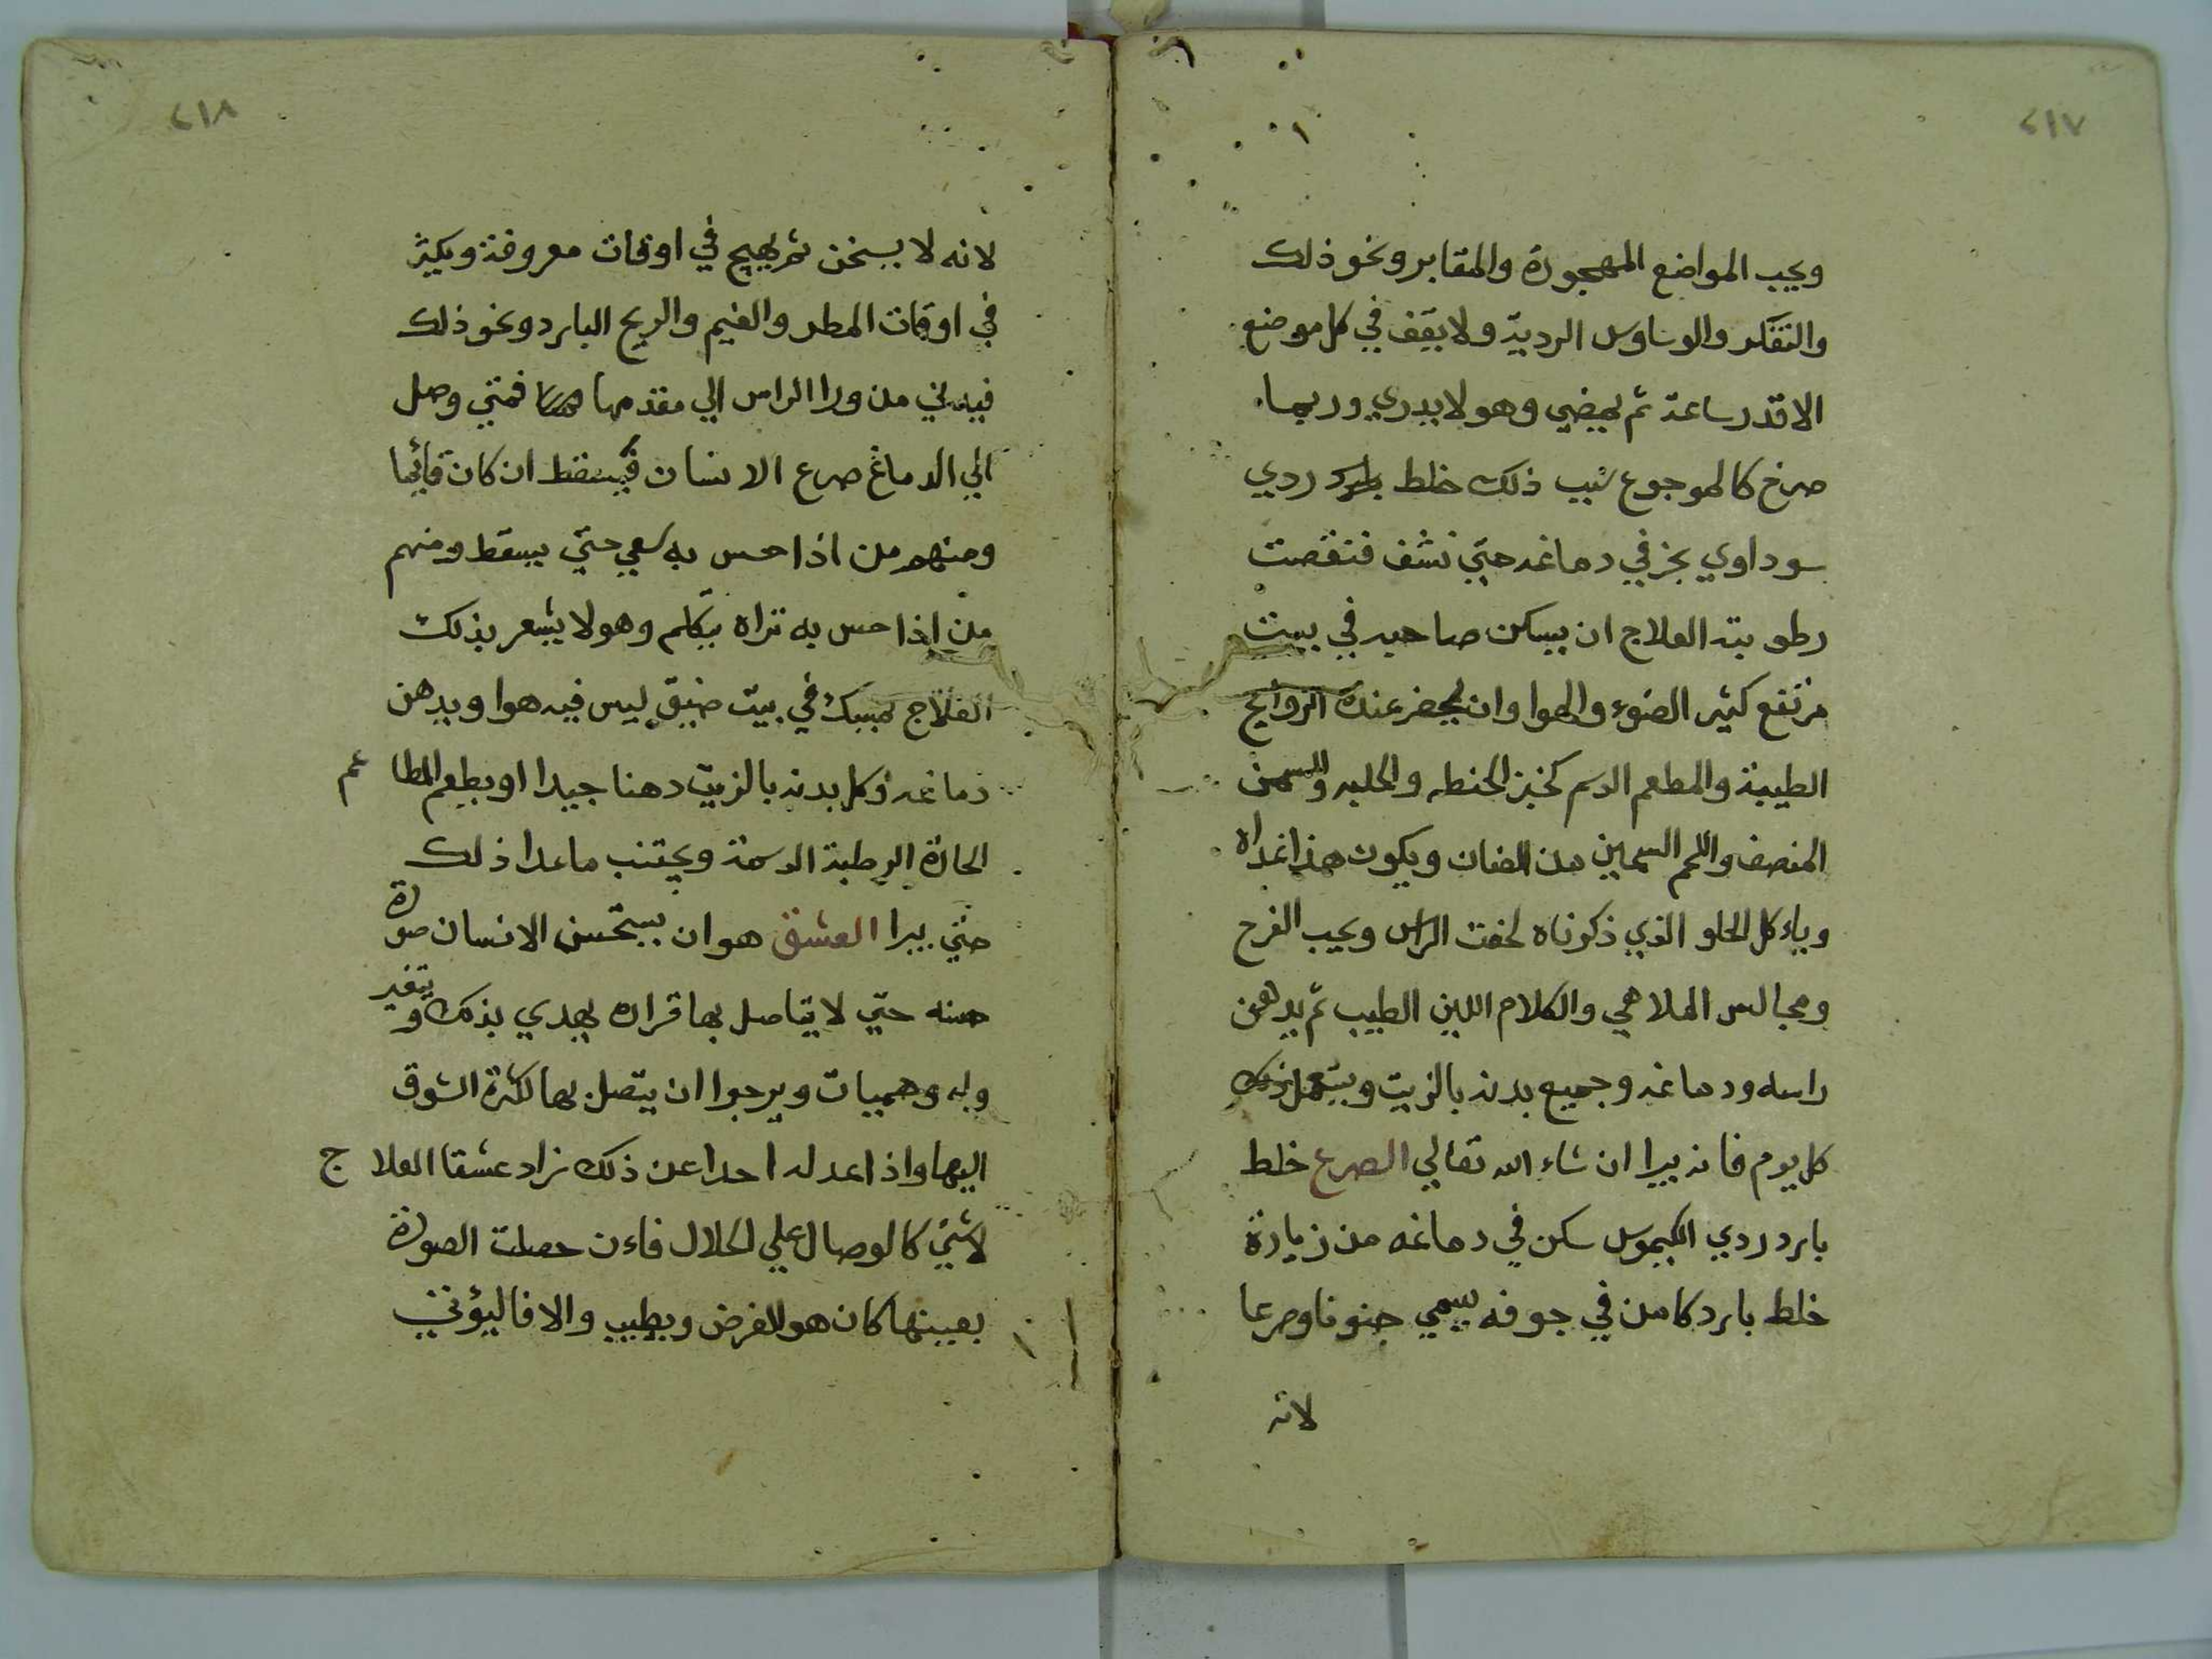 ٢١٧
ويحب المواضع المهجورة والمقابر ونحو ذلك
والتفكر والوساوس الردية ولا يقف في كل موضع
الا قدر ساعة ثم يمضي وهو لا يدري وربما
صرخ كالموجوع سبب ذلك خلط بارد ردي
سوداوي بخر في دماغه حتي نشف فنقصت
رطوبته العلاج ان يسكن صاحبه في بيت
مرتفع كثير الضوء والهوا وان يحضر عنده الروايح
الطيبة والمطعم الدسم كخبز الحنطه والحلبه والسمن
المنصف واللحم السمين من الضان ويكون هذا غداه
وياءكل الحلو الذي ذكرناه لخفت الراس ويحب الفرح
ومجالس الملاهي والكلام اللين الطيب ثم يدهن
راسه ودماغه وجميع بدنه بالزيت ويستعمل ذلك
كل يوم فانه يبرا ان شاء الله تعالي الصرع خلط
بارد ردي الكيموس سكن في دماغه من زيادة
خلط بارد كامن في جوفه يسمي جنونا وصرعا
لانه
٢١٨
لانه لا يسخن ثم يهيج في اوقات معروفة ويكثر
في اوقات المطر والغيم والريح البارد ونحو ذلك
من ورا الراس الي مقدمها فمتي وصل
الي الدماغ صرع الانسان فيسقط ان كان قائما
ومنهم من اذا حس به سعي حتي يسقط ومنهم
من اذا حس به تراه يتكلم وهو لا يشعر بذلك
العلاج يمسك في بيت ضيق ليس فيه هوا ويدهن
دماغه وكل بدنه بالزيت دهنا جيدا او يطعم المطا عم
الحارة الرطبة الدسمة ويجتنب ما عدا ذلك
حتي يبرا العشق هو ان يستحسن الانسان صورة
حسنه حتي لا يتاصل بها قراره يهدي بذلك ويتغير
وله وهميات ويرجوا ان يتصل بها لكثرة الشوق
اليها واذا عدله احدا عن ذلك زاد عشقا العلا ج
لا شيء كالوصال علي الحلال فاءن حصلت الصورة
بعينها كان هو الغرض ويطيب والا فاليؤتي